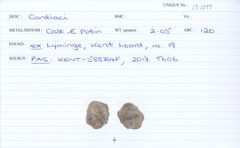 UNIQUE No:
DESC: Cantiaci BMC: VA:
METAL/DENOM: Cast Æ Potin WT (grams): 2.05 ABC: 120
FOUND: ex Lyminge, Kent hoard, no. 19
SOURCE: PAS: KENT-588B4F, 2017 T606